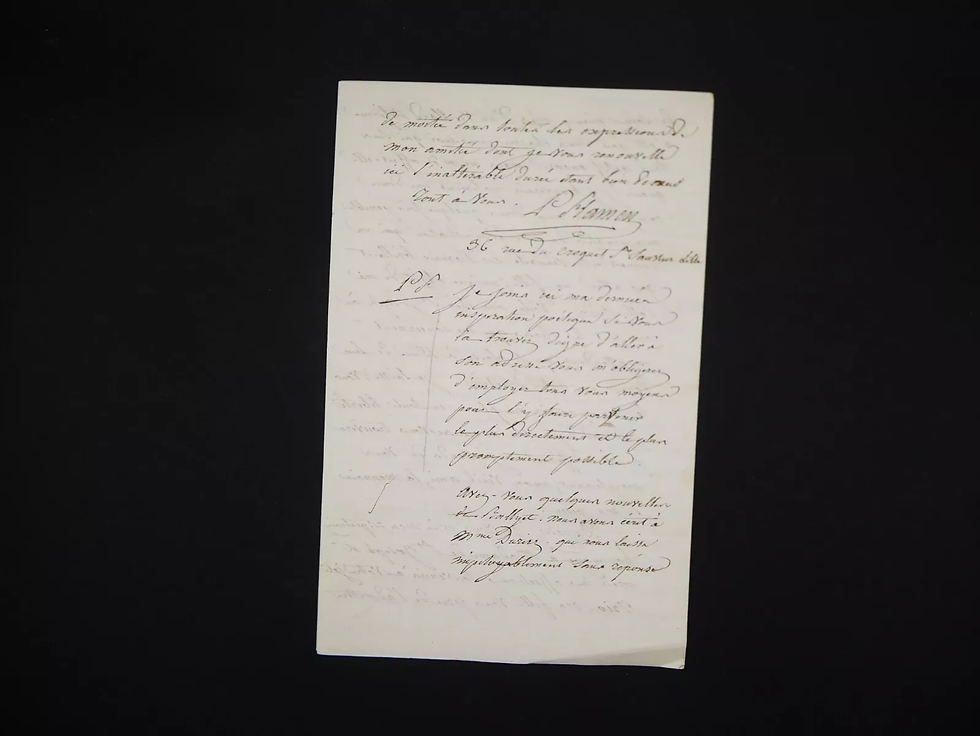 de moitié dans toutes les expressions de
mon amitié dont je vous renouvelle
ici l'inaltérable durée étant bien de cœur
Tout à Vous. P Hamon
36 rue du Croquet St Sauveur Lille
PS je joins ici ma derniere
inspiration poëtique si vous
la trouvez digne d'aller à
son adresse vous m'obligerez
d'employer tous vous moyens
pour l'y faire parvenir
le plus directement et le plus
promptement possible.
avez-vous quelques nouvelles
de nous avons écrit à
Mme qui nous laisse
impitoyablement sans reponse